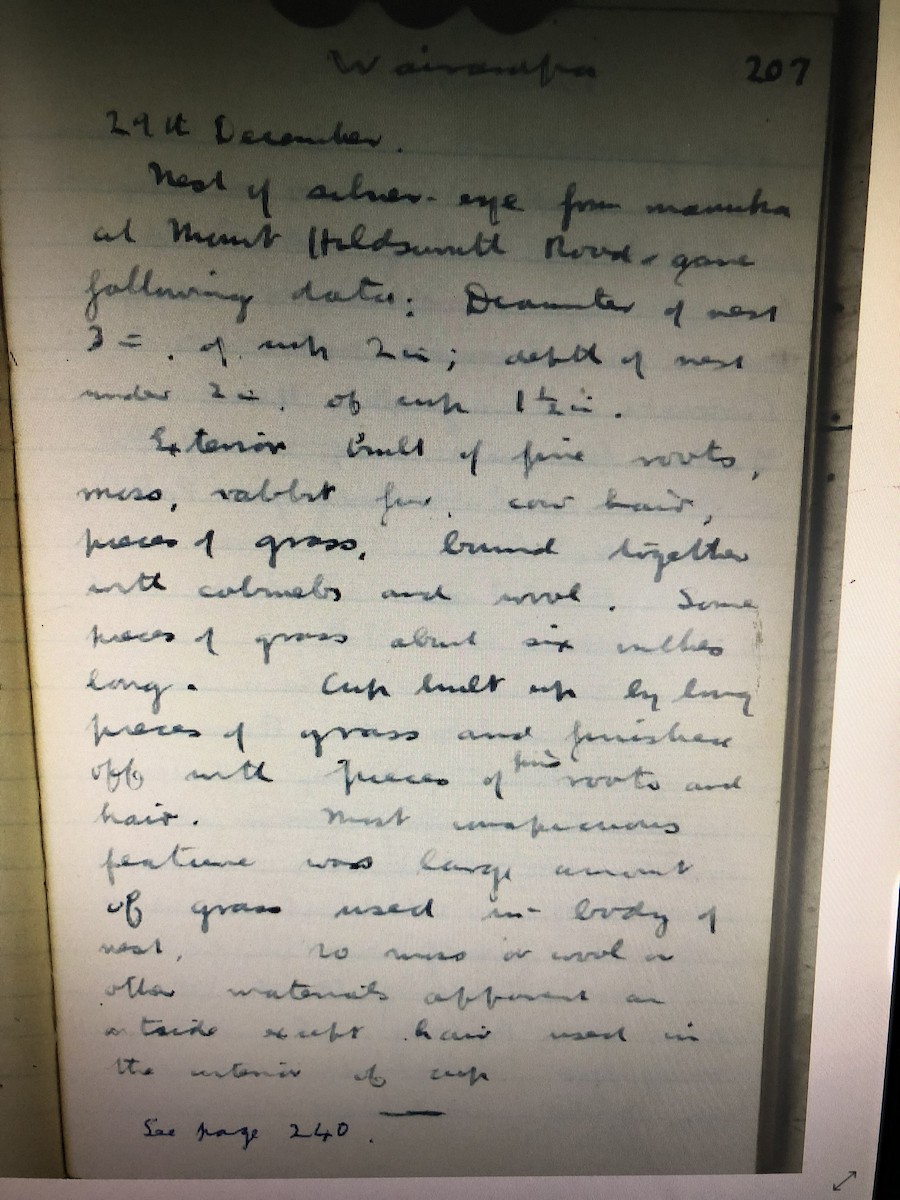 Wairarapa 207
29th December.
Nest of silver-eye from manuka
at Mount Holdsworth Road - gave
following data: Diameter of nest
3 in. of cup 2 in; depth of nest
under 2 in. of cup 1½ in.
Exterior built of fine roots,
moss, rabbit fur, cow hair,
pieces of grass, bound together
with cobwebs and wool. Some
pieces of grass about six inches
long. Cup built up by long
pieces of grass and finished
off with pieces of fine roots and
hair. Most conspicuous
feature was large amount
of grass used in body of
nest, no moss or wool or
other materials apparent on
outside except hair used in
the interior of cup
See page 240.